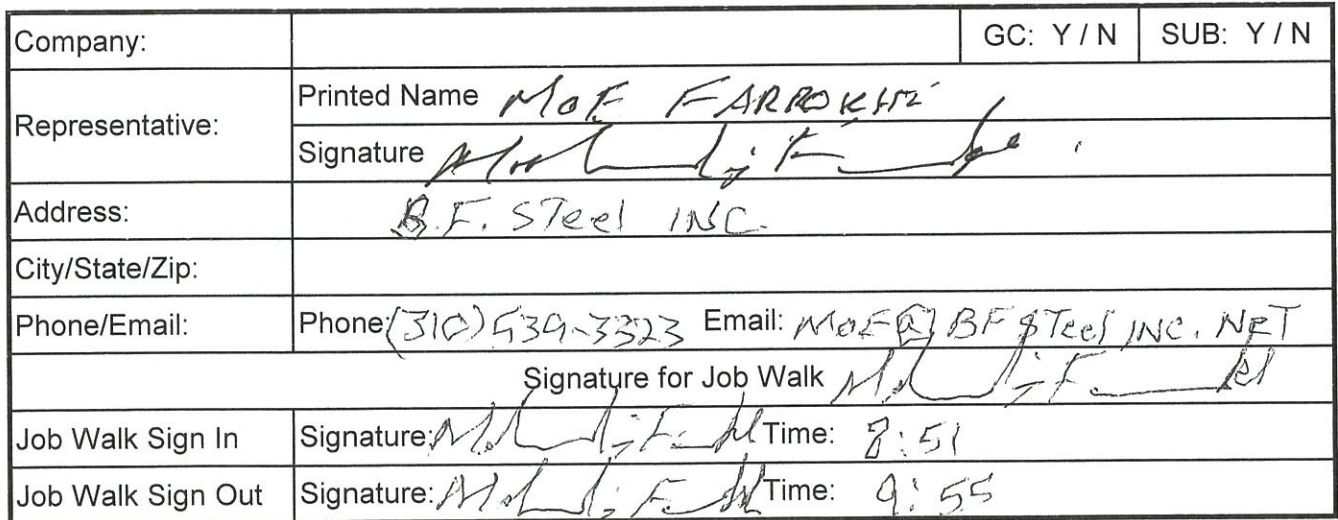 Company: GC: Y / N SUB: Y / N
Representative:
Printed Name MOE FARROKHI
Signature
Address: B.F. STeel INC.
City/State/Zip:
Phone/Email: Phone: (310) 539-3323 Email: MOE@BFSTeelINC.NET
Signature for Job Walk
Job Walk Sign In Signature: Time: 8:51
Job Walk Sign Out Signature: Time: 9:55